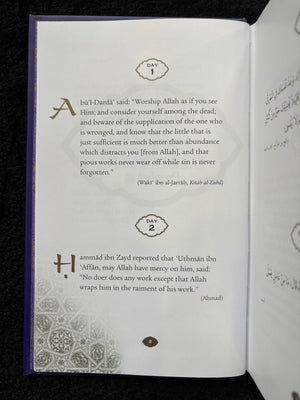 DAY
1
Abū'l-Dardā' said: "Worship Allah as if you see
Him; and consider yourself among the dead;
and beware of the supplication of the one who
is wronged, and know that the little that is
just sufficient is much better than abundance
which distracts you [from Allah], and that
pious works never wear off while sin is never
forgotten."
(Wakī' ibn al-Jarrāḥ, Kitāb al-Zuhd)
DAY
2
Ḥammād ibn Zayd reported that 'Uthmān ibn
'Affān, may Allah have mercy on him, said:
"No doer does any work except that Allah
wraps him in the raiment of his work."
(Aḥmad)